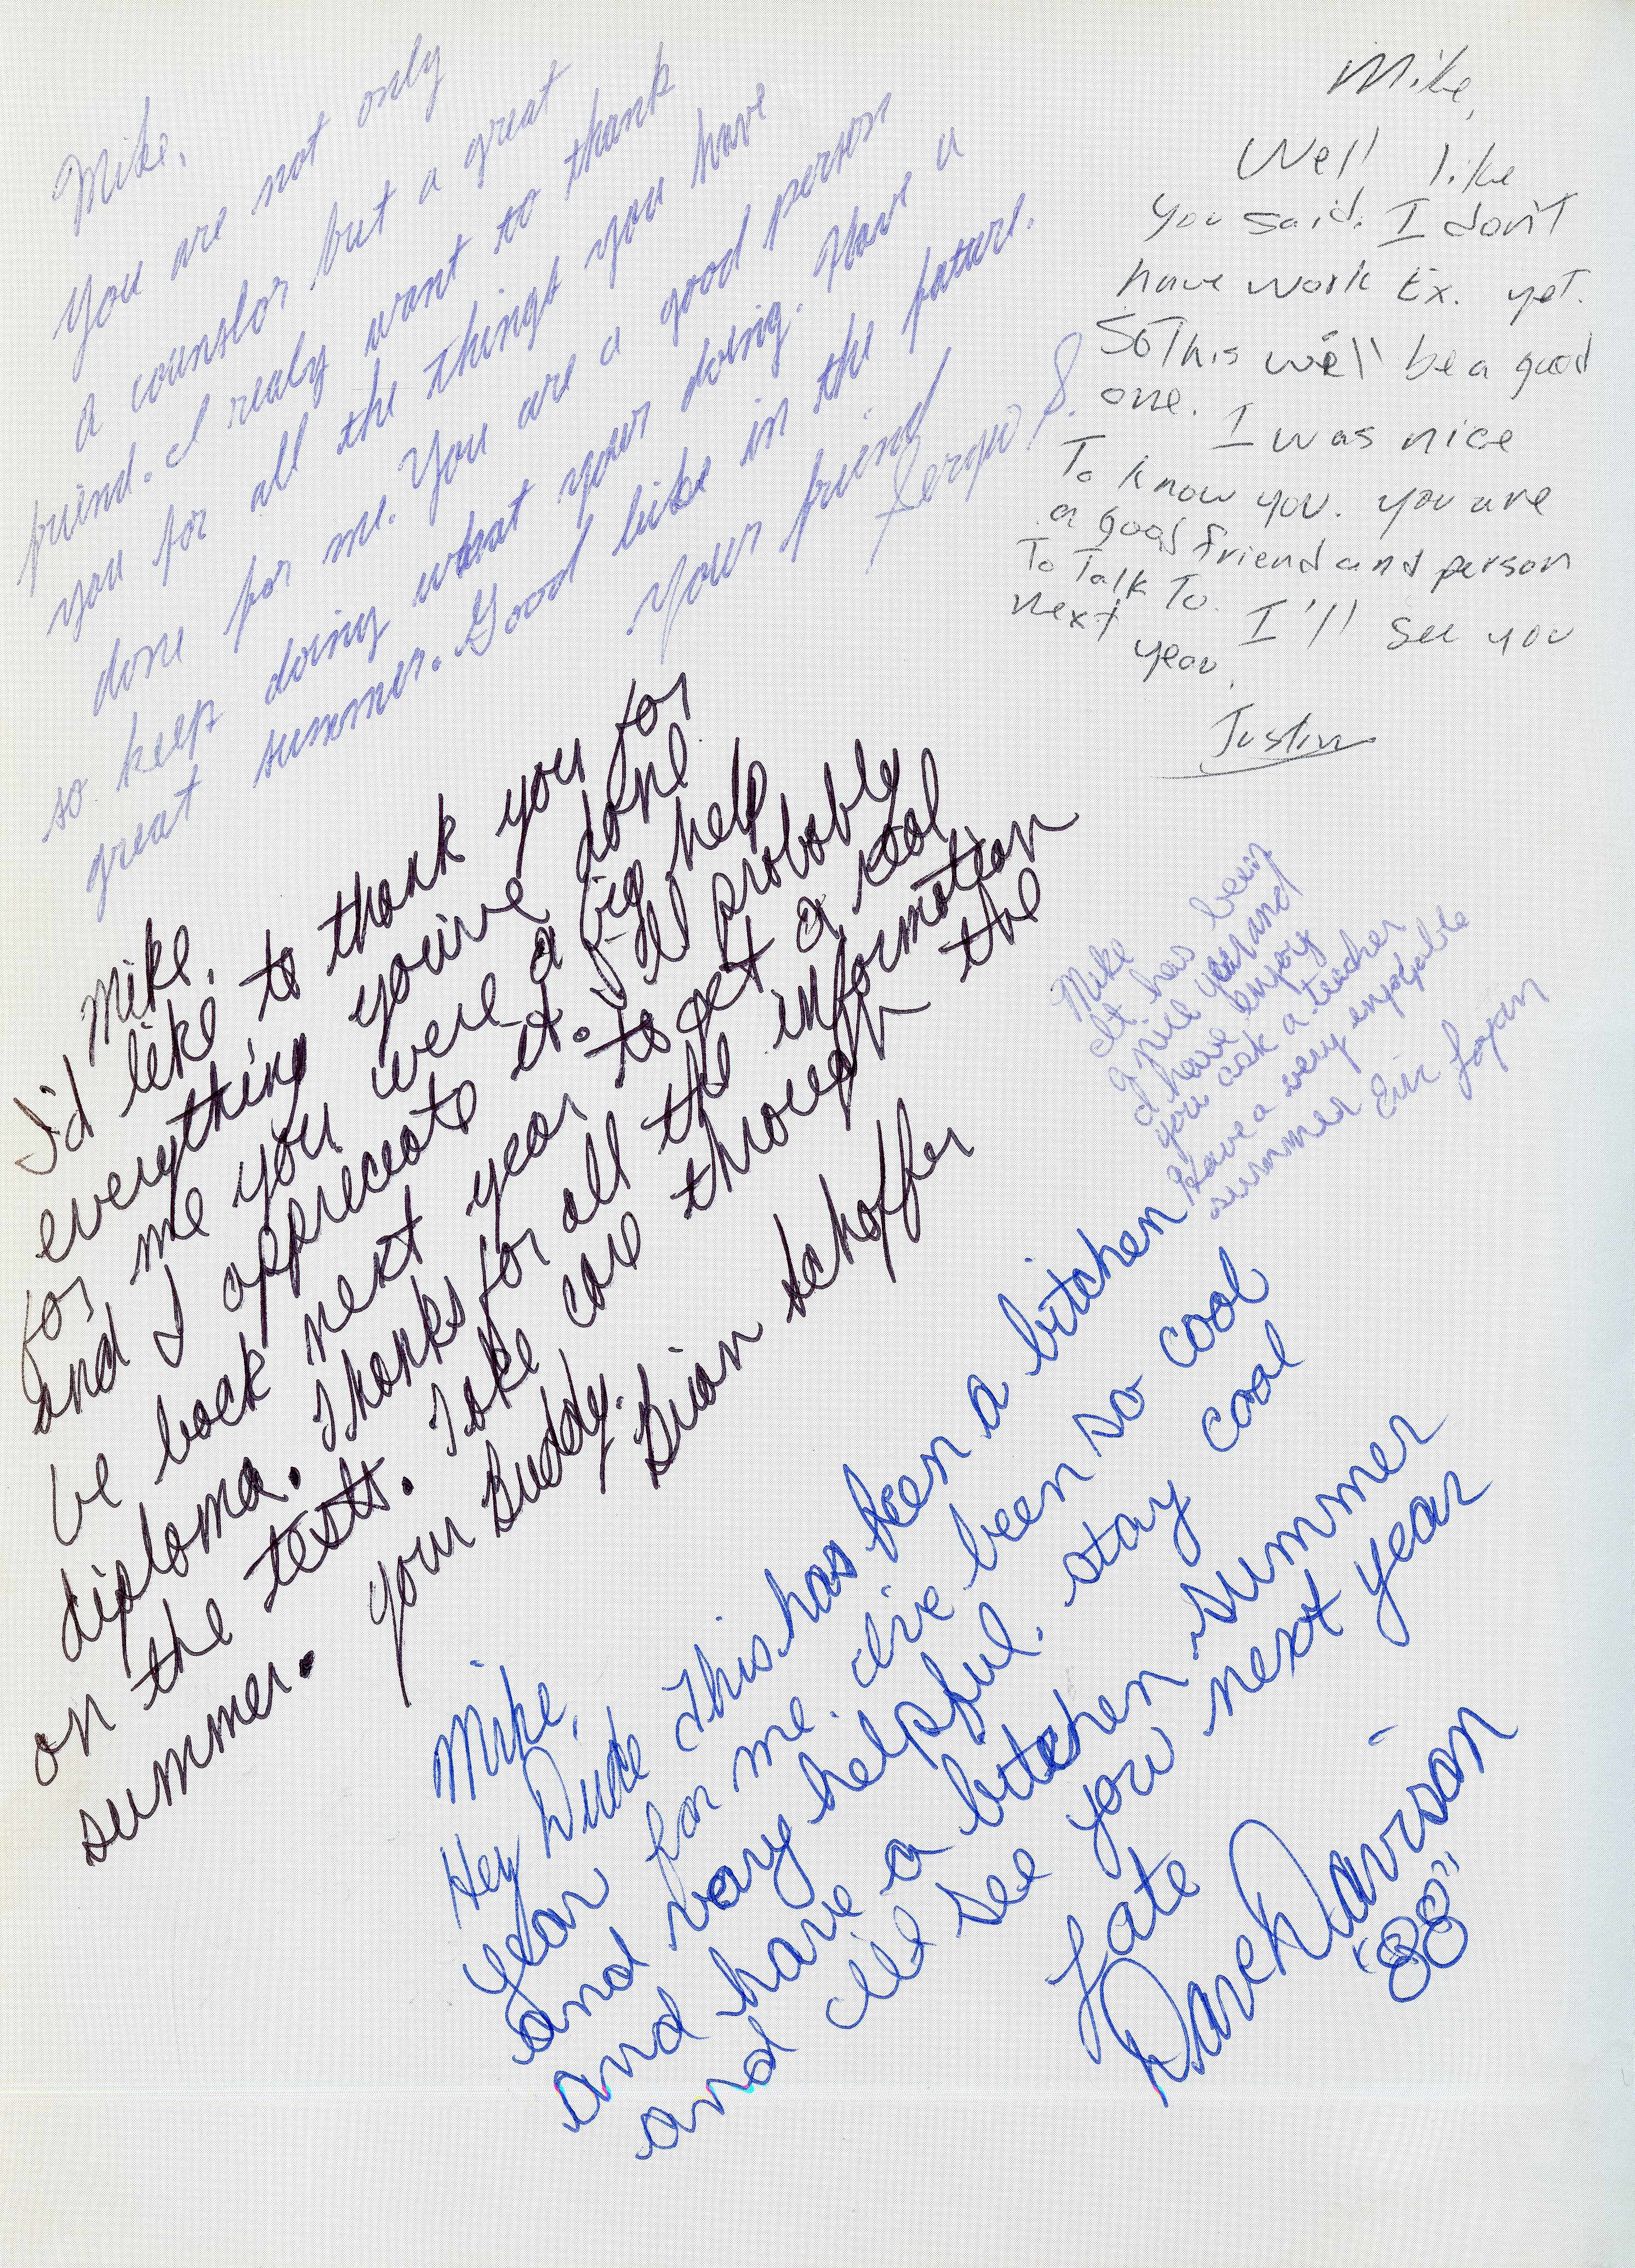 Mike,
You are not only
a counslor but a great
friend. I realy want to thank
you for all the things you have
done for me. You are a good person
so keep doing what your doing. Have a
great summer. Good luke in the future.
Your friend
Sergio S.
Mike,
Well like
you said. I don't
have work Ex. yet.
So This we'll be a good
one. I was nice
To know you. you are
a good friend and person
To Talk To. I'll see you
next year.
Justin
Mike,
I'd like to thank you for
everything you've done
for me you were a big help
and I appreceate it. I'll probably
be back next year to get a real
diploma. Thanks for all the information
on the tests. Take care through the
summer. Your Buddy.
Brian Schaffer
Mike
It has bein
a nice year and
I have enjoy
you ask a teacher
Have a very enjoyable
summer Eric
Mike,
Hey Dude This has been a bitchen
year for me. I've been so cool
and vary helpful. stay cool
and have a bitchen summer
and I'll see you next year
Late
Dave Davison
"88"